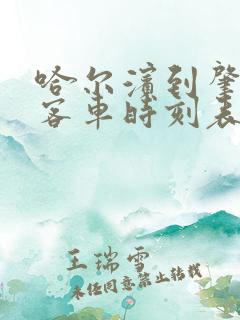 哈尔滨到肇
客车时刻表
王瑞雪
未经同意禁止转载